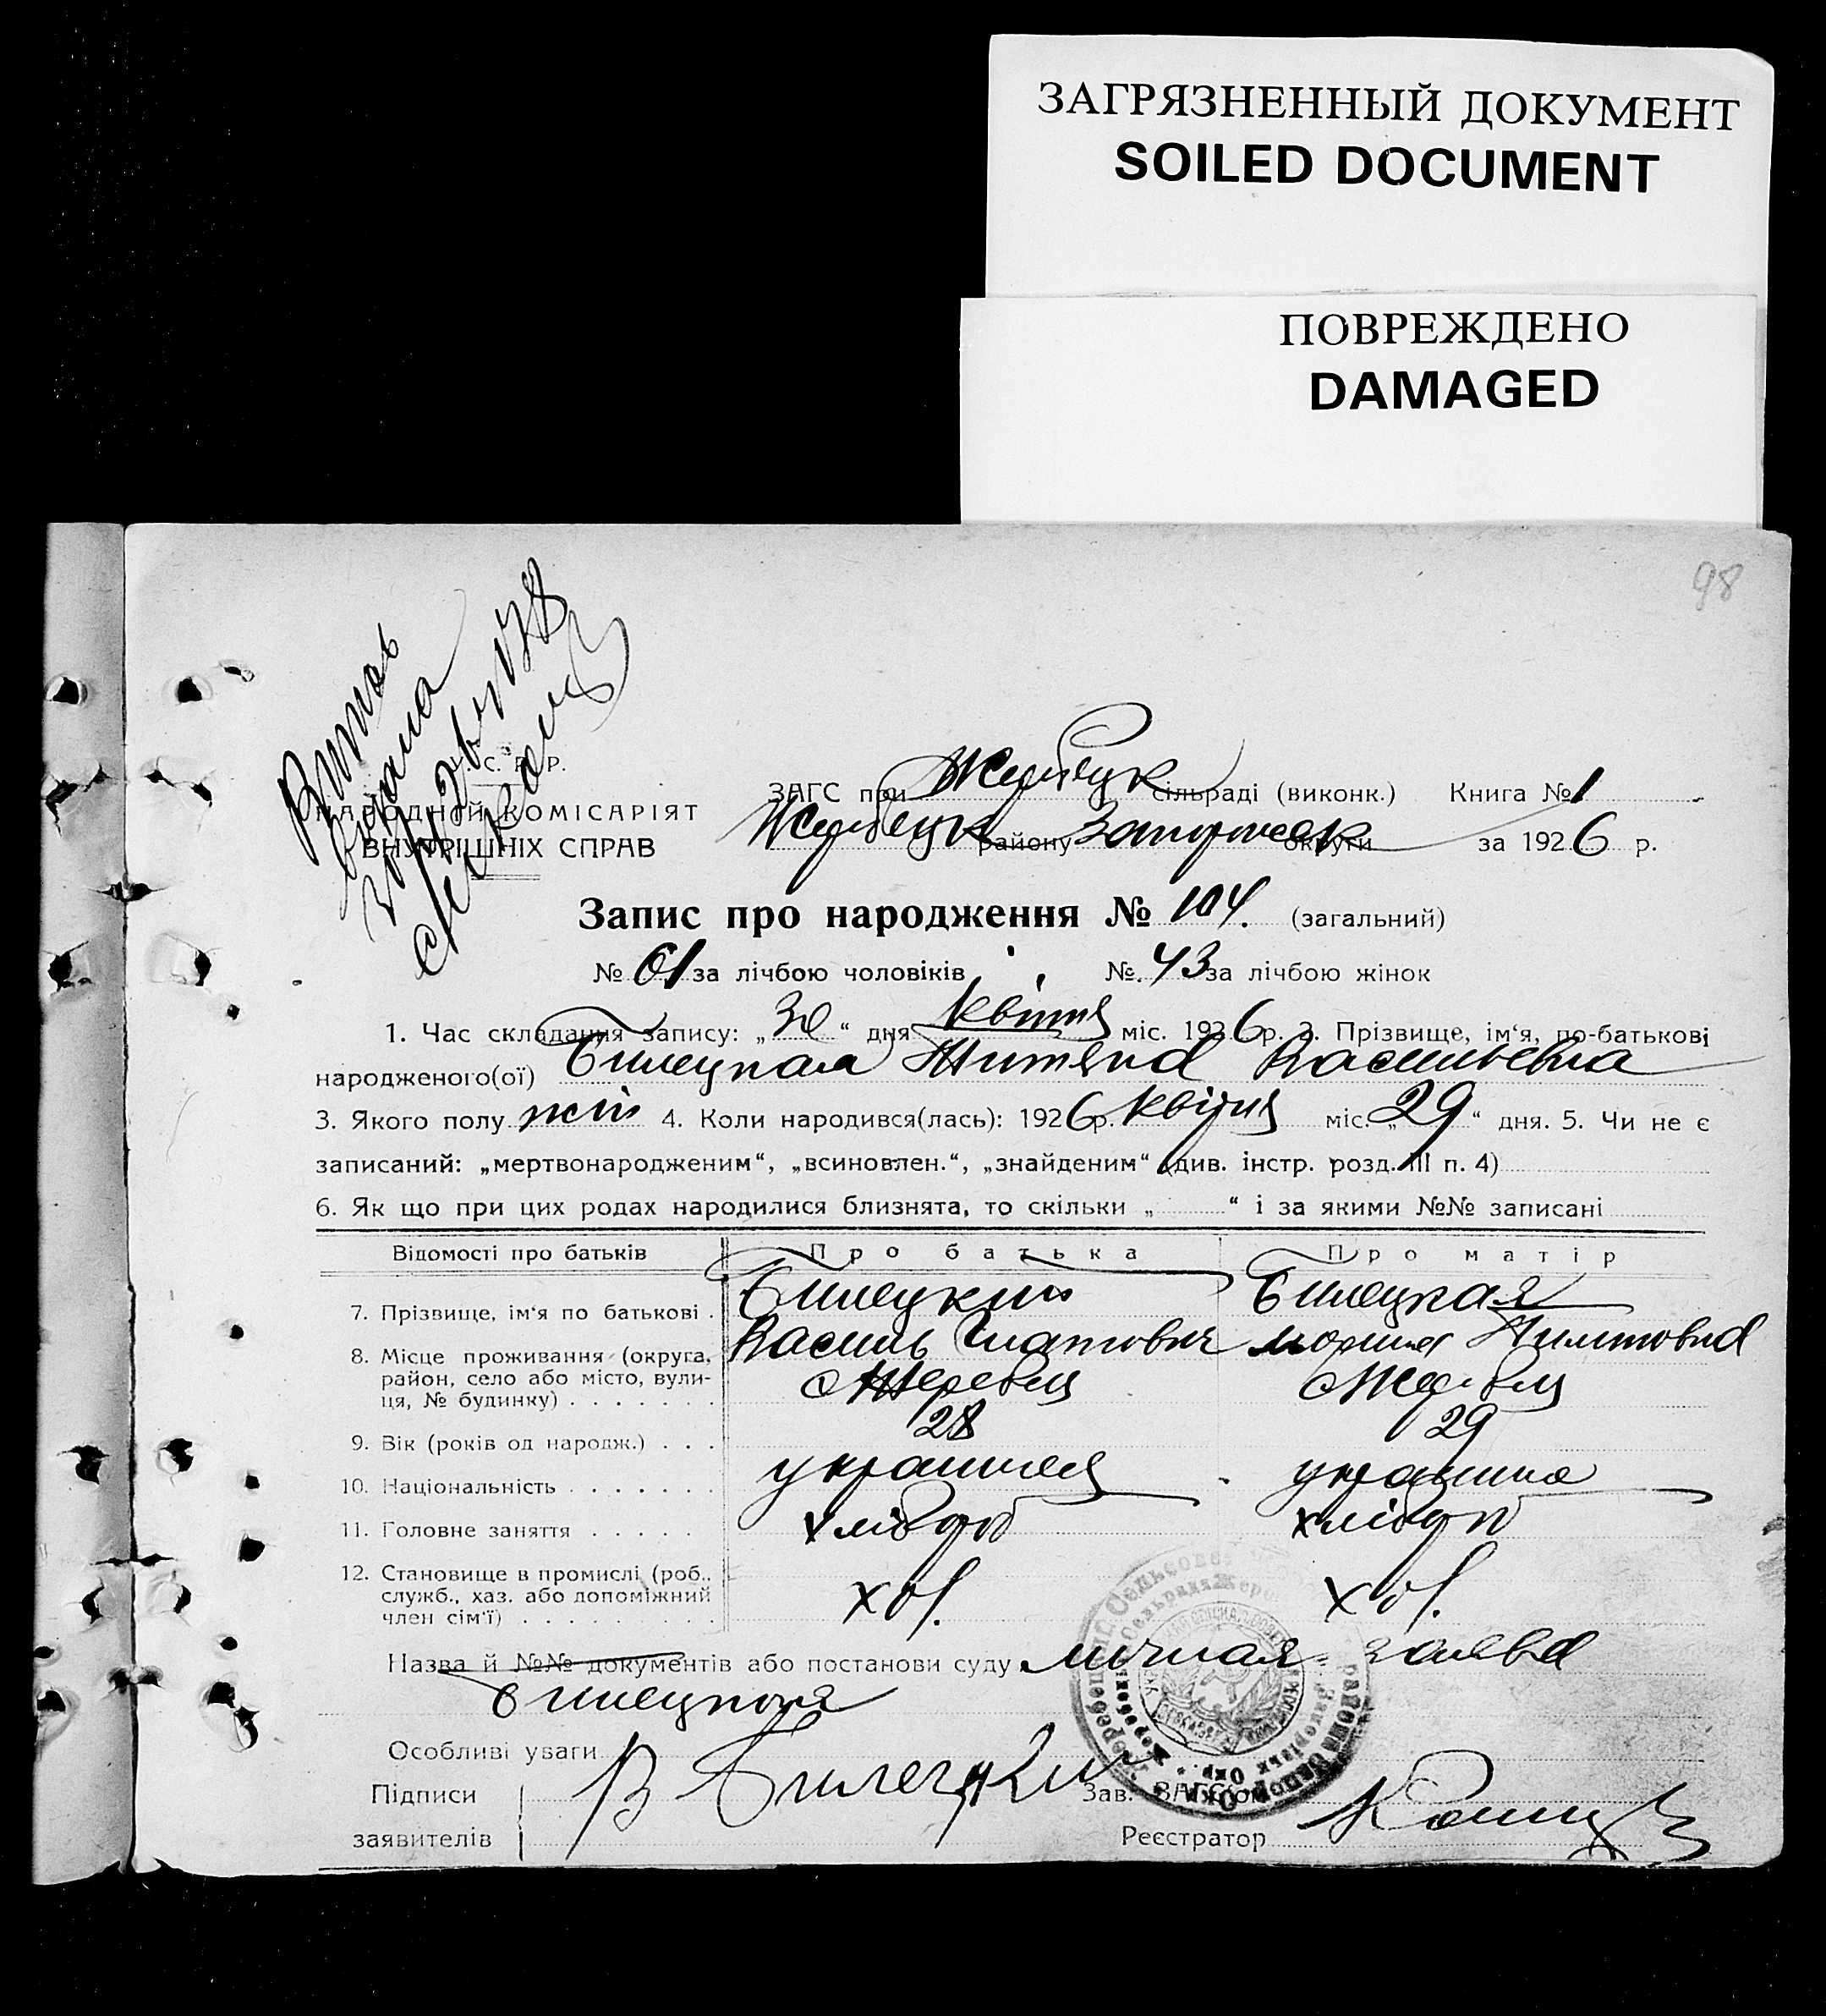 ЗАГРЯЗНЕННЫЙ ДОКУМЕНТ
SOILED DOCUMENT
ПОВРЕЖДЕНО
DAMAGED
98
С. Р. Р.
НАРОДНІЙ КОМІСАРІЯТ
ВНУТРІШНІХ СПРАВ
ЗАГС при Жеребецк сільраді (виконк.) Книга № 1
Жеребецк району Запорожск округи за 1926 р.
Запис про народження № 104. (загальний)
№ 61 за лічбою чоловіків № 43 за лічбою жінок
1. Час складання запису: „30“ дня квітня міс. 1926 р. 2. Прізвище, ім‘я, по-батькові
народженого(ої) Билецкая Васильевна
3. Якого полу жін 4. Коли народився(лась): 1926 р. квітня міс. „29“ дня. 5. Чи не є
записаний: „мертвонародженим“, „всиновлен.“, „знайденим“ (див. інстр. розд. III п. 4)
6. Як що при цих родах народилися близнята, то скільки „ “ і за якими №№ записані
Відомості про батьків Про батька Про матір
7. Прізвище, ім‘я по батькові . Билецкий Билецкая
Василь
8. Місце проживання (округа, район, село або місто, вулиця, № будинку) . . . . . . . с Жеребец с Жеребец
9. Вік (років од народж.) . . . 28 29
10. Національність . . . . . . . украинец
11. Головне заняття . . . . . хлібороб хлібороб
12. Становище в промислі (роб., служб., хаз. або допоміжний член сім‘ї) . . . . . . . . .
Назва й №№ документів або постанови суду личная заява
Билецкого
Особливі уваги
Підписи заявителів В Билецкий
Зав. ЗАГСом
Реєстратор